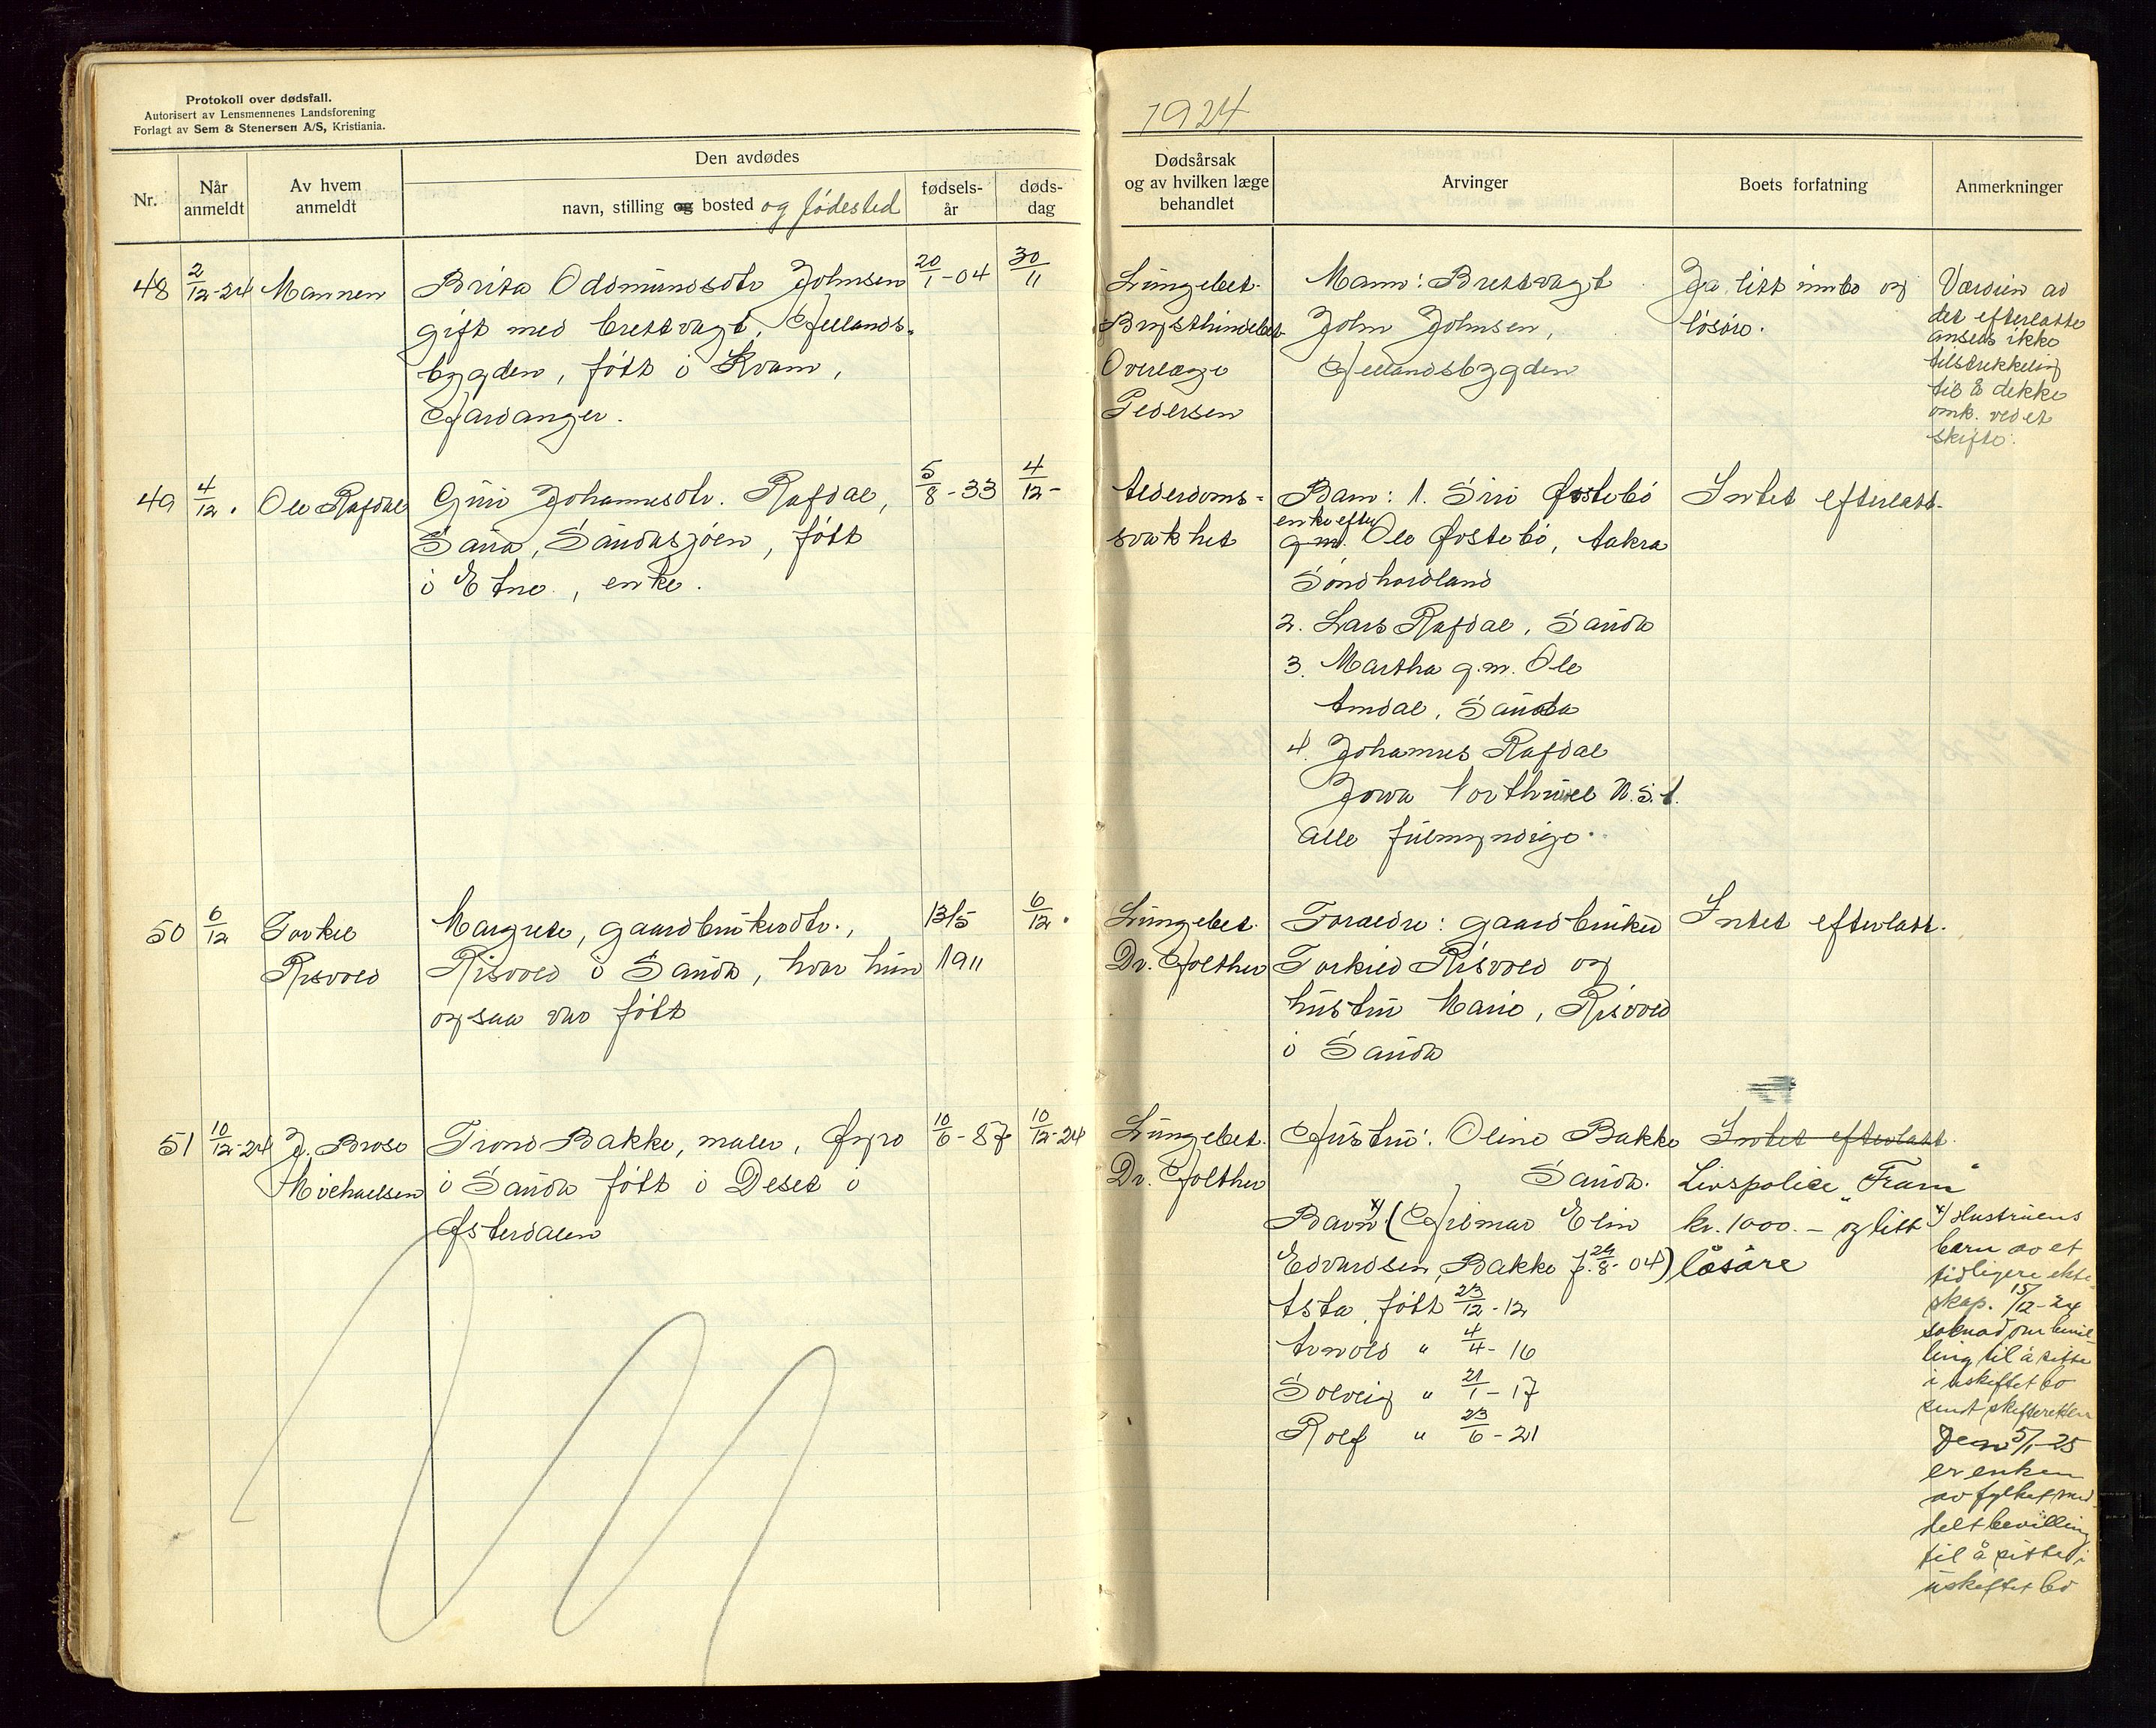 Protokoll over dødsfall.
Autorisert av Lensmennenes Landsforening
Forlagt av Sem & Stenersen A/S, Kristiania.
1924
Nr.
Når anmeldt
Av hvem anmeldt
Den avdødes
navn, stilling og bosted og fødested
fødsels-år
døds-dag
Dødsårsak
og av hvilken læge
behandlet
Arvinger
Boets forfatning
Anmerkninger
48 2/12-24 Mannen
Brita Oddmundsdtr Johnsen
gift med brettvagt, Hellands-
bygden, født i Kvam,
Hardanger.
20/1-04
30/11
Lungebet.
Brysthindebet
Overlæge
Pedersen
Mann: Brettvagt
John Johnsen,
Hellandsbygden
Ja, litt innbo og
løsøre.
Værdien av
det efterlatte
ansees ikke
tilstrekkelig
til å dekke
omk. ved et
skifte.
49 4/12. Ole Rafdal
Guri Johannesdtr. Rafdal,
Sauda, Saudasjøen, født
i Etne, enke.
5/8-33
4/12-
Alderdoms-
svakhet
Barn: 1. Siri Østebø
enke efter
g.m. Ole Østebø, Aakra
Søndhordland
2. Lars Rafdal, Sauda
3. Martha g.m. Ole
Amdal, Sauda
4. Johannes Rafdal
Jowa U.S.A.
alle fulmyndige.
Intet efterlatt.
50 6/12 Torkel
Risvold
Margrete, gaardbrukerdtr.,
Risvold i Sauda, hvor hun
ogsaa var født
13/5
1911
6/12.
Lungebet.
Dr. Holther
Foræeldre: gaardbruker
Torkild Risvold og
hustru Marie, Risvold
i Sauda
Intet efterlatt.
51 10/12-24 J. Brose
Michaelsen
Trond Bakke, maler, Øyro
i Sauda født i Deset i
Østerdalen
10/6-87
10/12-24
Lungebet.
Dr. Holther
Hustru: Oline Bakke
Sauda.
Barn x) (Hilmar Elin
Edvardsen, Bakke f. 24/8-04)
Asta, født 23/12-12
Arnold " 4/4-16
Solveig " 21/1-17
Rolf " 23/6-21
Intet efterlatt.
Livspolice "Fram"
kr. 1000.- og litt
løsøre
x) Hustruens
barn av et
tidligere ekte-
skap. 15/12-24
søknad om bevil-
ling til å sitte
i uskiftet bo
sendt skifteretten
5/1-25
er enken
av fylket med-
delt bevilling
til å sitte i
uskiftet bo